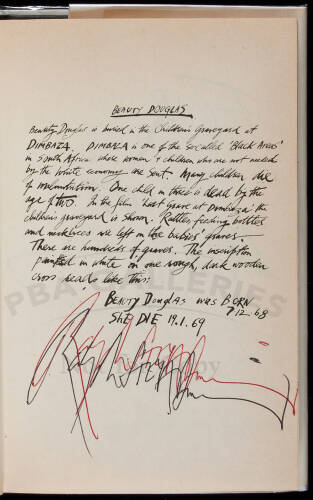 BEAUTY DOUGLAS
Beauty Douglas is buried in the Children's graveyard at
DIMBAZA. DIMBAZA is one of the so called 'Black Areas'
in South Africa where women & children who are not needed
by the White economy are sent. Many children die
of malnutrition. One child in three is dead by the
age of TWO. In the film 'Last grave at Dimbaza' the
children's graveyard is shown. Rattles, feeding bottles
and necklaces are left on the babies' graves.
There are hundreds of graves. The inscription
painted in white on one rough, dark wooden
cross reads like this:
BEAUTY Douglas was BORN
7.12.68
SHE DIE 19.1.69
PBA GALLERIES